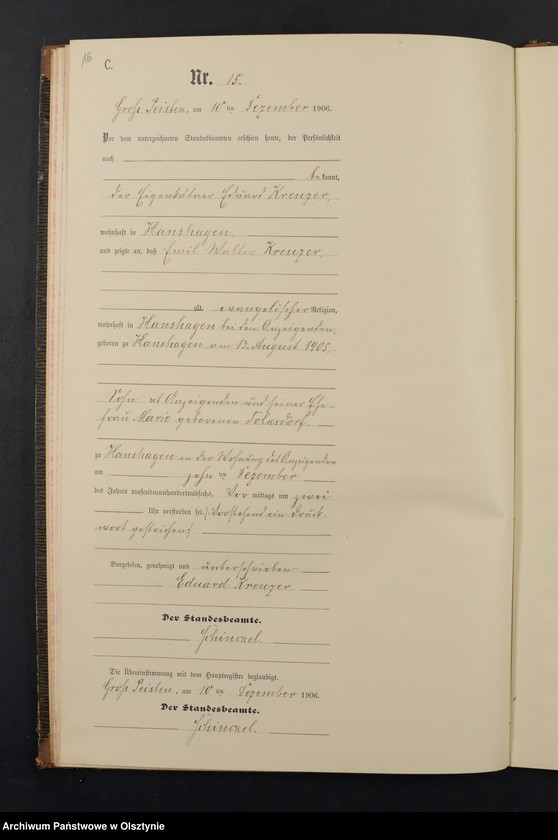 16
C.
Nr. 15.
Groß Peisten, am 10 ten Dezember 1906.
Vor dem unterzeichneten Standesbeamten erschien heute, der Persönlichkeit
nach
bekannt,
der Eigenkätner Eduard Kreuzer,
wohnhaft in Hanshagen.
und zeigte an, daß Emil Walter Kreuzer,
alt, evangelischer Religion,
wohnhaft in Hanshagen bei dem Anzeigenden,
geboren zu Hanshagen am 13. August 1905,
Sohn des Anzeigenden und seiner Ehe-
frau Marie geborenen
zu Hanshagen in der Wohnung des Anzeigenden
am zehn ten Dezember
des Jahres tausendneunhundertundsechs, Vor mittags um zwei
Uhr verstorben sei. Vorstehend ein Druck-
wort gestrichen!
Vorgelesen, genehmigt und unterschrieben
Eduard Kreuzer.
Der Standesbeamte.
Die Übereinstimmung mit dem Hauptregister beglaubigt.
Groß Peisten, am 10 ten Dezember 1906.
Der Standesbeamte.
Archiwum Państwowe w Olsztynie